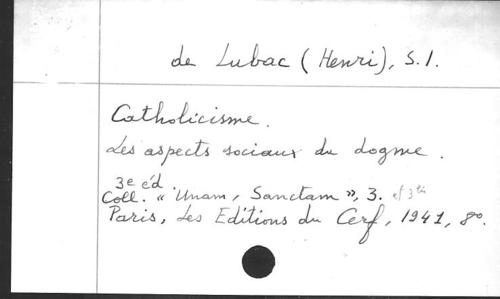 de Lubac (Henri), S.I.
Catholicisme.
Les aspects sociaux du dogme.
3e éd.
Coll. « Unam, Sanctam », 3.
Paris, Les Editions du Cerf, 1941, 8º.